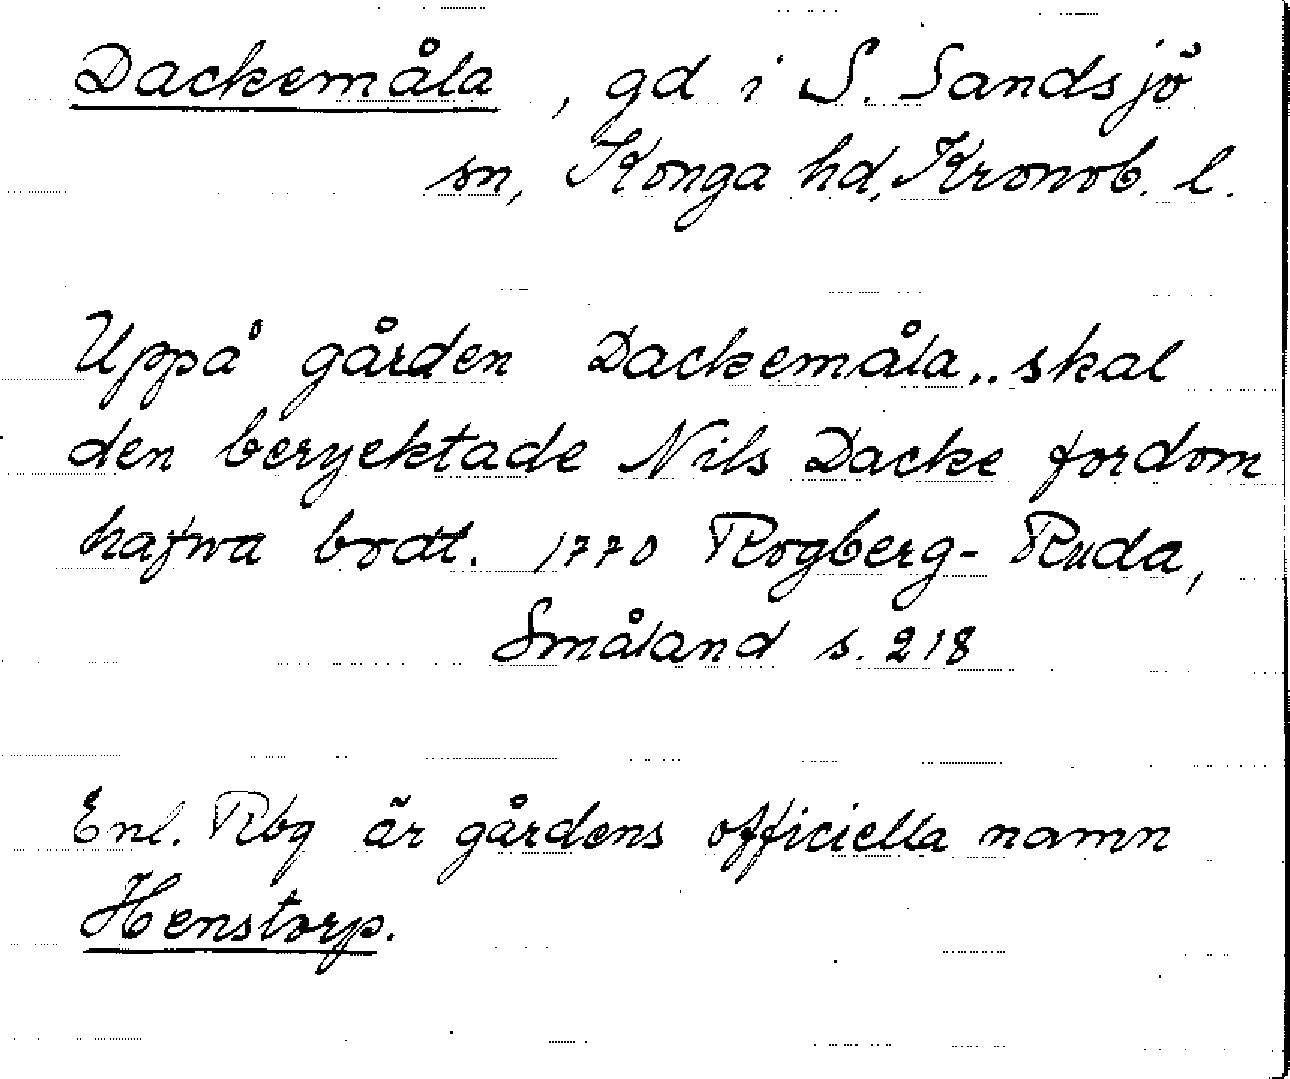 Dackemåla, gd i S. Sandsjö
sn, Konga hd, Kronob. l.
Uppå gården Dackemåla.. skal
den beryektade Nils Dacke fordom
hafwa bodt. 1770 Rogberg-Ruda,
Småland s. 218
Enl. Rbg är gårdens officiella namn
Henstorp.